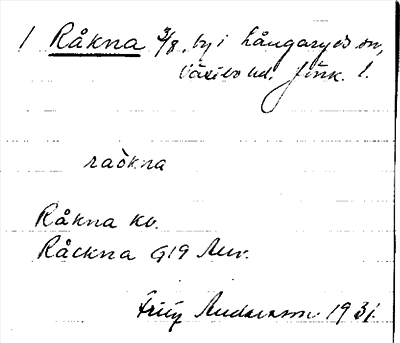 1 Råkna 3/8. by i Långaryds sn,
Västbo hd. Jönk. l.
raòkna
Råkna kb.
Råckna G19 Auv.
Andersson 1931.